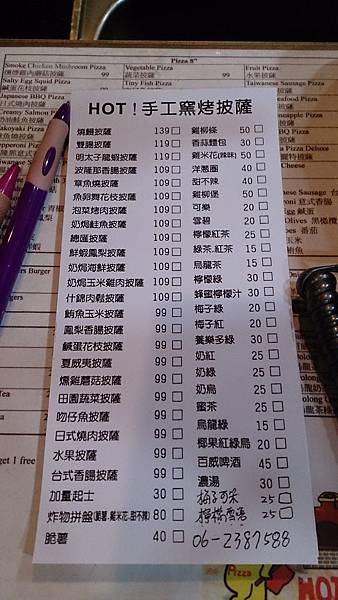 Pizza 8"
Smoke Chicken Mushroom Pizza
燻雞蘑菇披薩 99
Vegetable Pizza
蔬菜披薩 99
Fruit Pizza
水果披薩
Salty Egg Squid Pizza
鹹蛋花枝披薩
Tiny Fish Pizza
Taiwanese Sausage Pizza
Japanese BBQ Pizza
日式燒肉披薩
HOT！手工窯烤披薩
燒饅披薩 139 □
雙腸披薩 119 □
明太子龍蝦披薩 119 □
波蘿那香腸披薩 109 □
章魚燒披薩 109 □
魚卵舞花枝披薩 109 □
泡菜烤肉披薩 109 □
奶焗鮭魚披薩 109 □
總匯披薩 109 □
鮮蝦鳳梨披薩 109 □
奶焗海鮮披薩 109 □
奶焗玉米雞肉披薩 109 □
什錦肉鬆披薩 109 □
鮪魚玉米披薩 99 □
鳳梨香腸披薩 99 □
鹹蛋花枝披薩 99 □
夏威夷披薩 99 □
燻雞蘑菇披薩 99 □
田園蔬菜披薩 99 □
吻仔魚披薩 99 □
日式燒肉披薩 99 □
水果披薩 99 □
台式香腸披薩 99 □
加量起士 30 □
炸物拼盤(薯條.雞米花.甜不辣) 80 □
脆薯 40 □
雞柳條 50 □
香蒜麵包 30 □
雞米花(辣味) 50 □
洋蔥圈 40 □
甜不辣 40 □
雞堡 50 □
可樂 20 □
雪碧 20 □
檸檬紅茶 25 □
綠茶.紅茶 15 □
烏龍茶 15 □
檸檬綠 30 □
蜂蜜檸檬汁 30 □
梅子綠 20 □
梅子紅 20 □
養樂多綠 30 □
奶紅 25 □
奶綠 25 □
奶烏 25 □
蜜茶 25 □
烏龍綠 15 □
椰果紅綠烏 20 □
百威啤酒 45 □
濃湯 30 □
梅子可樂 25 □
檸檬雪碧 25 □
06-2387588